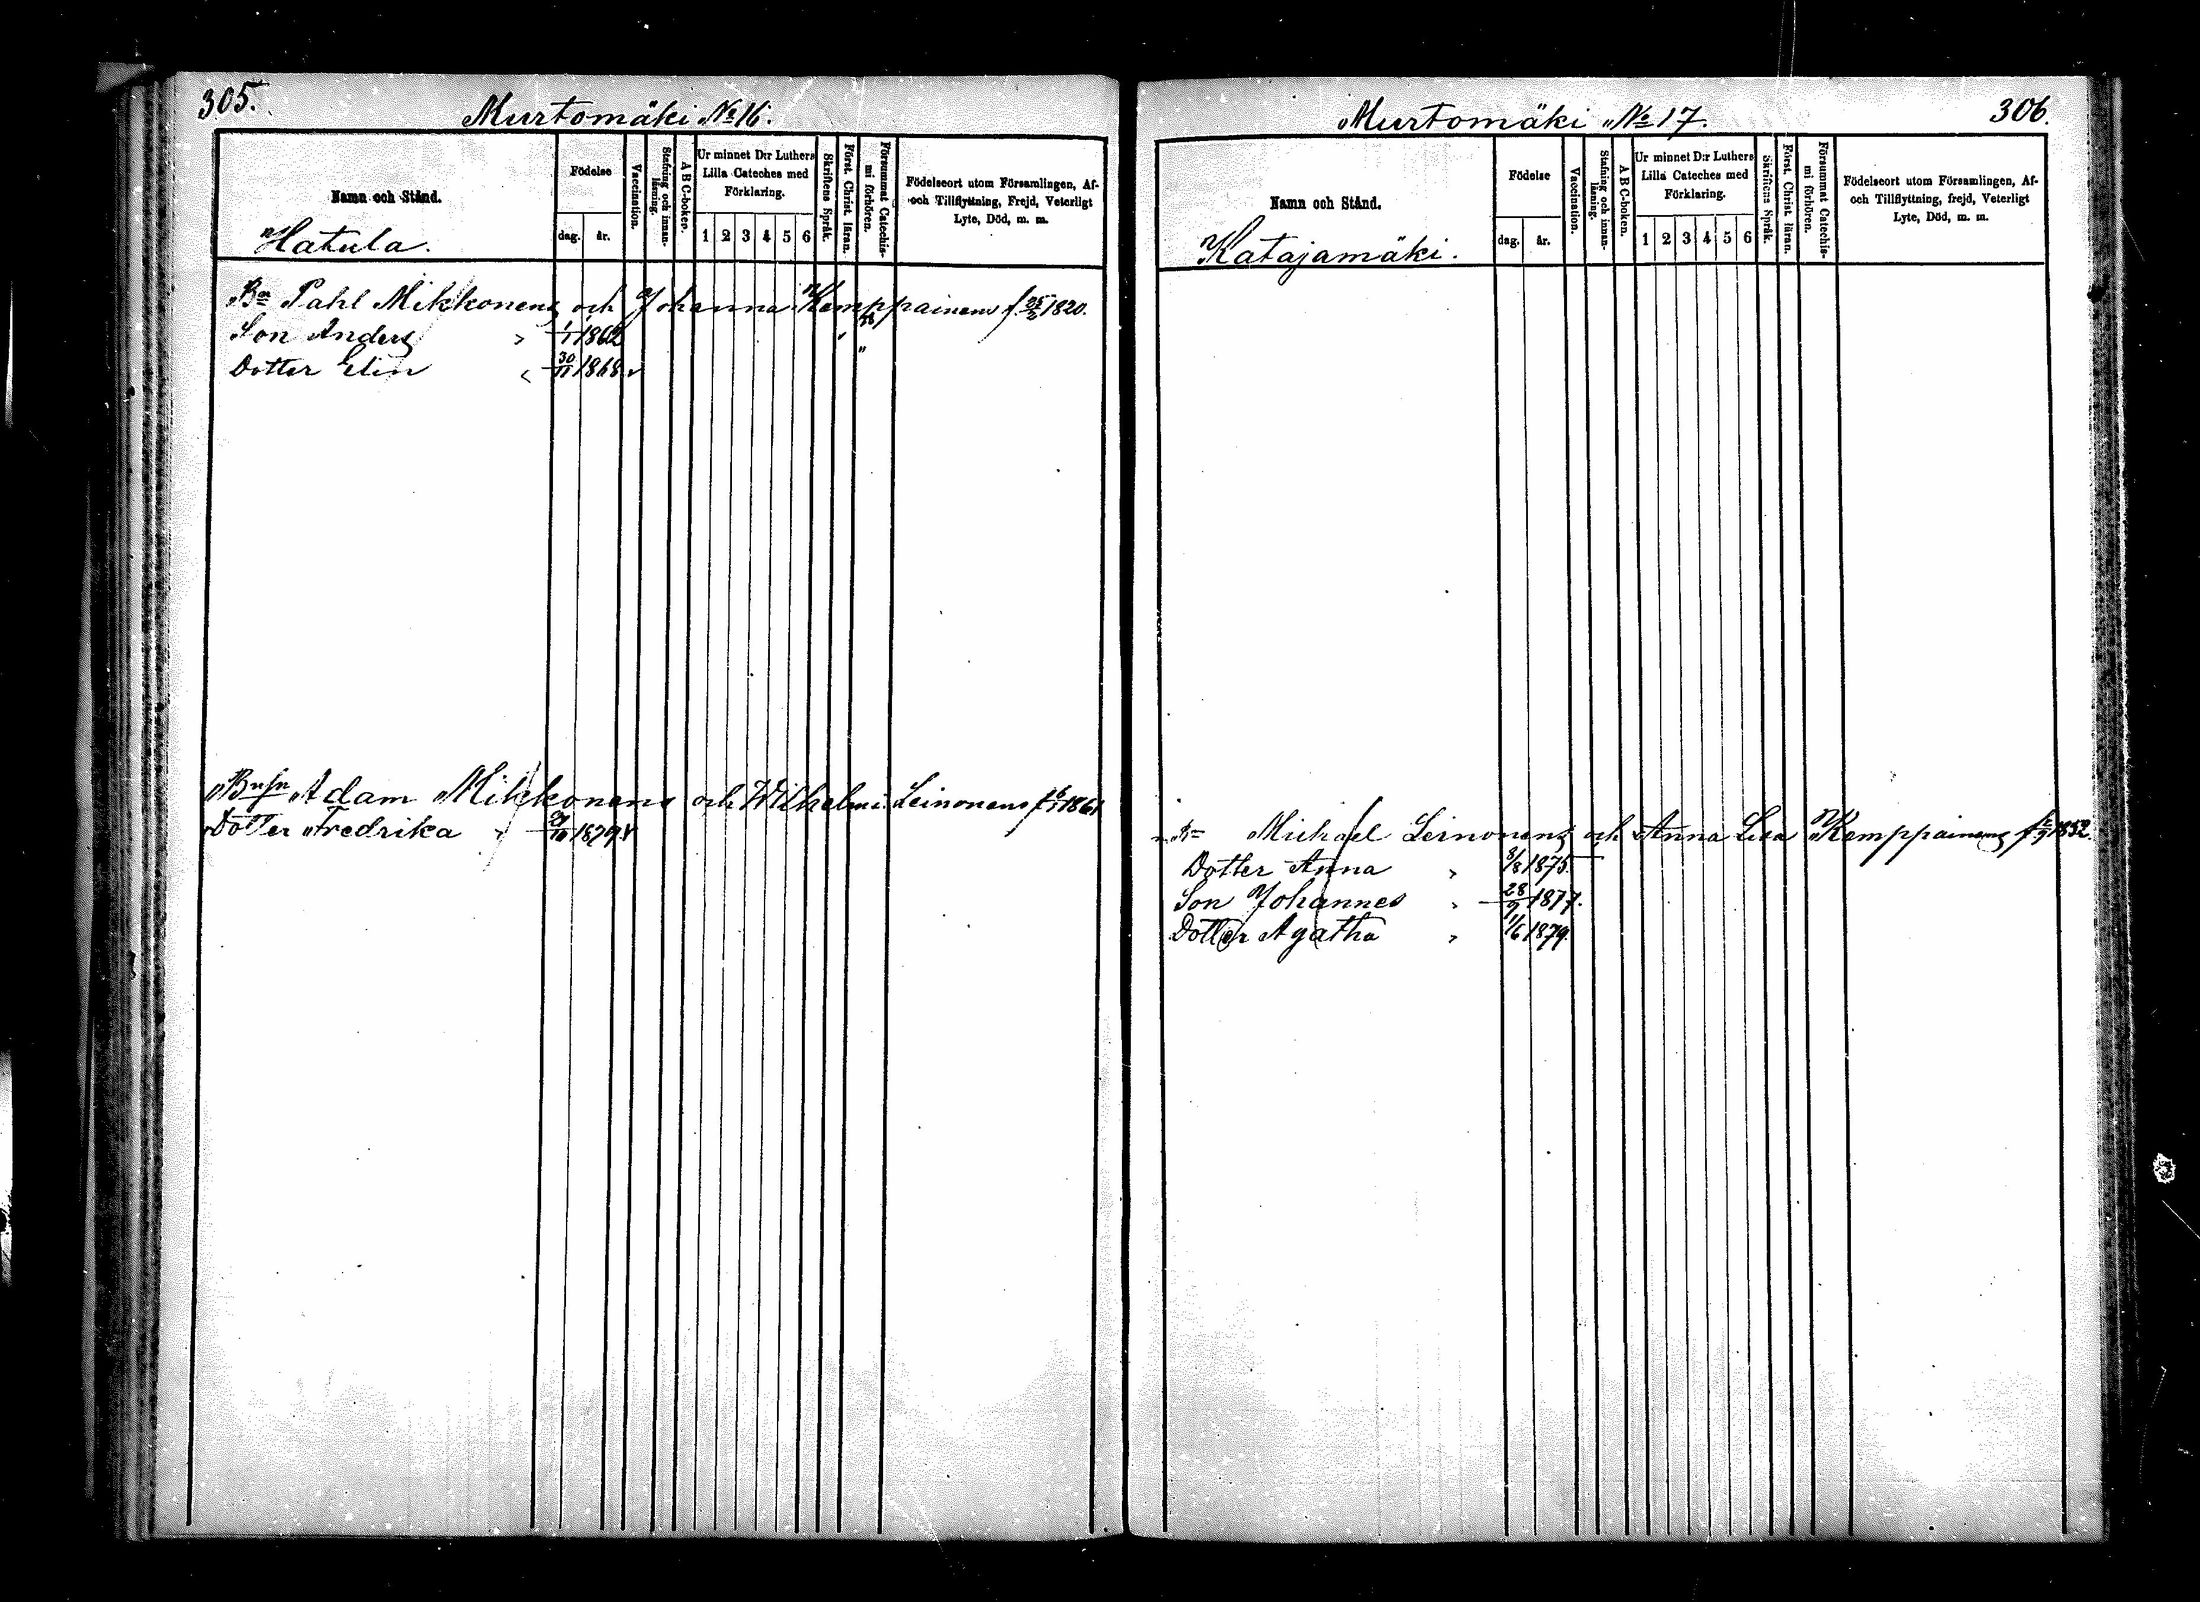 305.
Murtomäki No 16.
Namn och Stånd.
Hatula.
Födelse
dag. år.
Vaccination.
Stafning och innanläsning.
A B C-boken.
Ur minnet D:r Luthers
Lilla Cateches med
Förklaring.
1 2 3 4 5 6
Skriftens Språk.
Först. Christ. läran.
Försummat Catechismi förhören.
Födelseort utom Församlingen, Af-
och Tillflyttning, Frejd, Veterligt
Lyte, Död, m. m.
Bn Pahl Mikkonens och Johanna Kemppainens f. 25/2 1820.
Son Anders 1/1 1862
Dotter Elin 30/11 1868
Adam Mikkonens och Wilhelmi. Leinonens 1861
Dotter Fredrika 1879
306.
Murtomäki No 17.
Namn och Stånd.
Katajamäki.
Födelse
dag. år.
Vaccination.
Stafning och innanläsning.
A B C-boken.
Ur minnet D:r Luthers
Lilla Cateches med
Förklaring.
1 2 3 4 5 6
Skriftens Språk.
Först. Christ. läran.
Försummat Catechismi förhören.
Födelseort utom Församlingen, Af-
och Tillflyttning, frejd, Veterligt
Lyte, Död, m. m.
Michael Leinonens och Anna Lisa Kemppainens 1852.
Dotter Anna 3/8 1875.
Son Johannes 28/9 1877.
Dotter Agatha 11/6 1879.